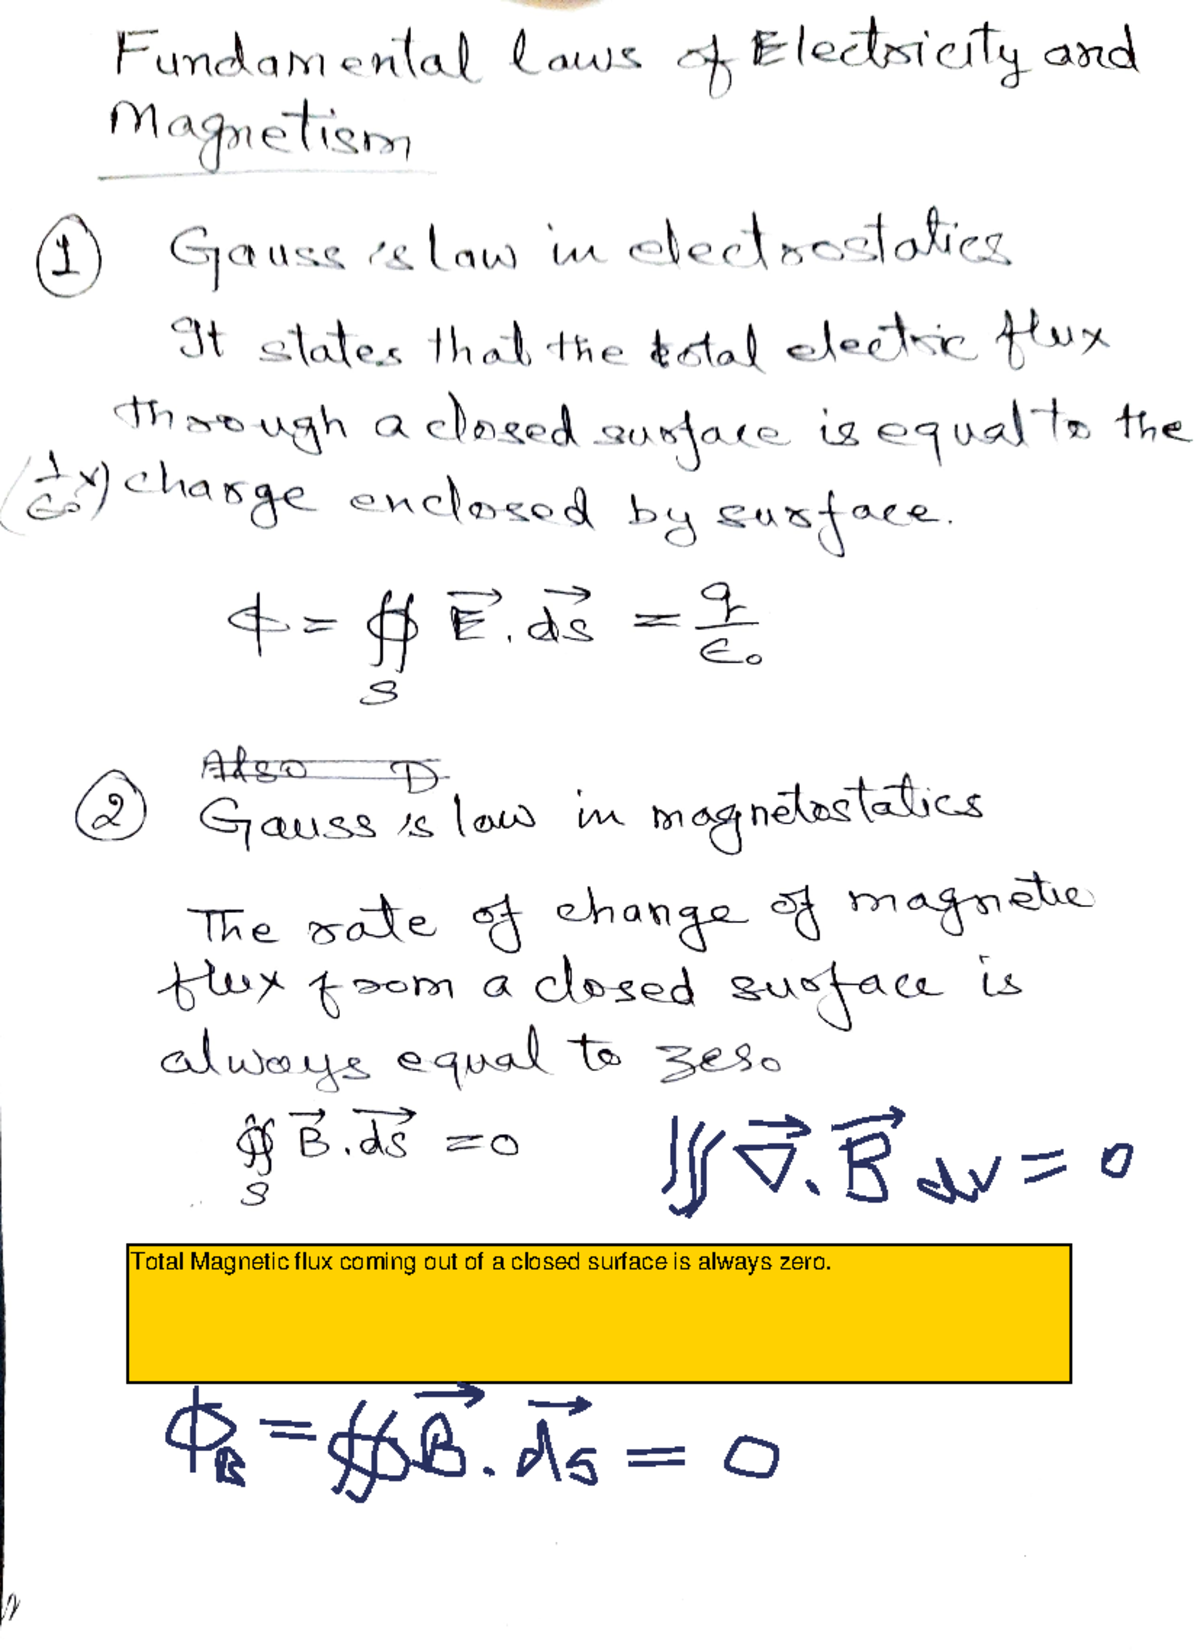 Fundamental laws of Electricity and
Magnetism
① Gauss's law in electrostatics
It states that the total electric flux
through a closed surface is equal to the
(1/ε₀ ×) charge enclosed by surface.
ϕ = ∯ E⃗ . d⃗s = q/ε₀
S
Also D
② Gauss's law in magnetostatics
The rate of change of magnetic
flux from a closed surface is
always equal to zero
∯ B⃗ . d⃗s = 0 ∭ ∇⃗ . B⃗ dv = 0
S
Total Magnetic flux coming out of a closed surface is always zero.
ϕ_B = ∯ B⃗ . d⃗s = 0